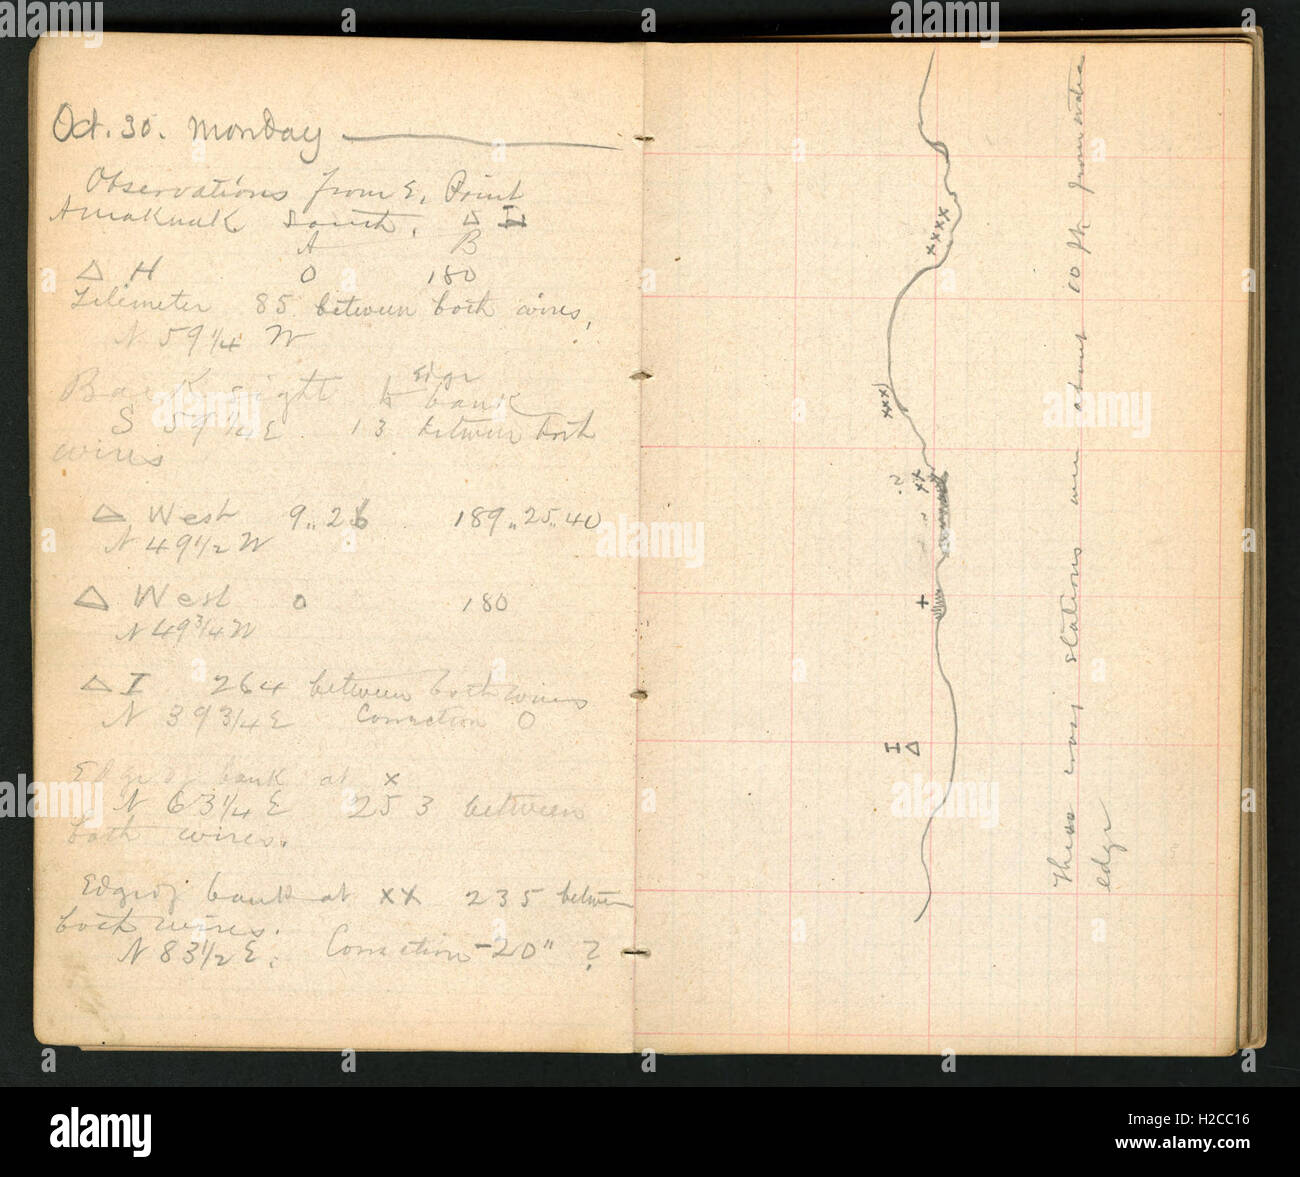 Oct. 30. Monday
Observations from E. Point
Amaknak South. △ I
A B
△ H 0 180
Telemeter 85 between both wires,
N 59 1/4 W
Back sight to Edge
bank
S 59 1/4 E 13 between both
wires
△ West 9..26 189..25..40
N 49 1/2 W
△ West 0 180
N 49 3/4 W
△ I 264 between both wires
N 39 3/4 E Correction 0
Edge of bank at x
N 63 1/4 E 253 between
both wires.
Edge of bank at xx 235 between
both wires.
N 83 1/2 E. Correction -20" ?
xxxx
xxx
? xx
+
I △
These way stations are about 10 ft from water
edge
alamy
H2CC16
www.alamy.com